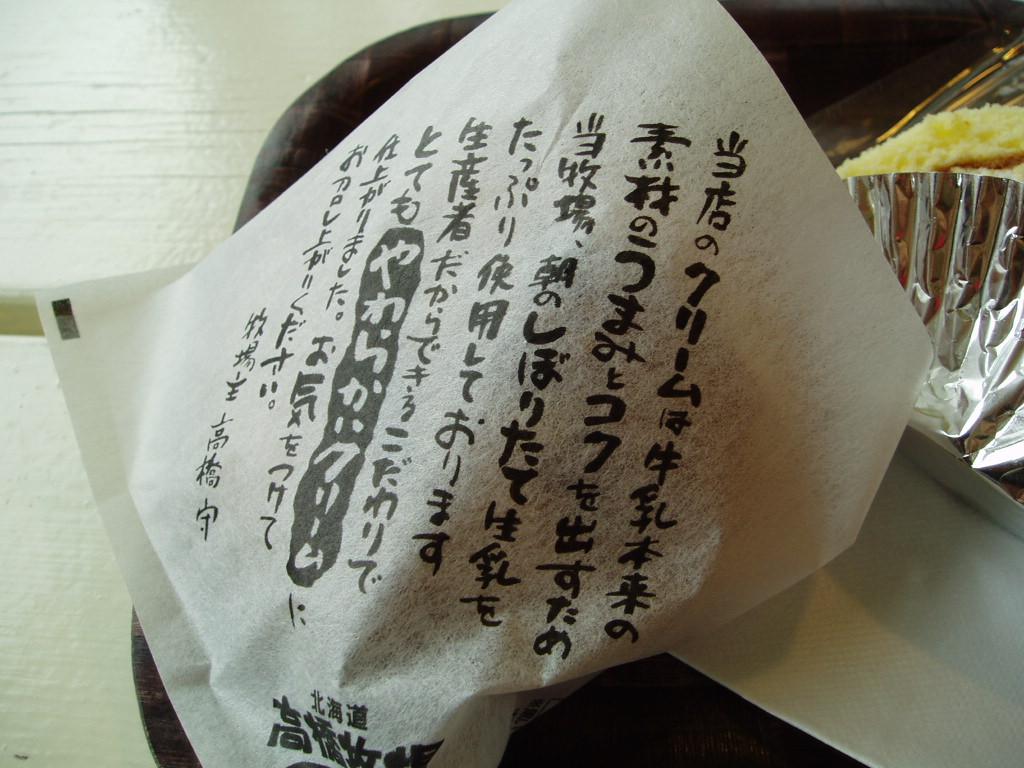 当店のクリームは牛乳本来の
素材のうまみとコクを出すため
当牧場、朝のしぼりたて生乳を
たっぷり使用しております
生産者だからできるこだわりで
とてもやわらかいクリームに
仕上がりました。お気をつけて
お召し上がりください。
牧場主 高橋守
北海道
高橋牧場